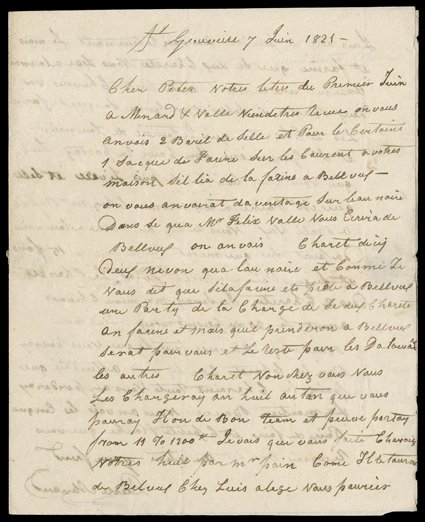 Ste Genevieve 7 Juin 1825 -
Cher Peter Notres letre du Premier Juin
a Menard & Valle Vien detres recue on vous
anvois 2 Baril de Selle et Pour le Certains
1 Sacque de farine Sur les Courent a votres
maison Sil lia de la farine a Bellvue -
on vous anvoirat da ventage Sur leau noire
Dans se qua Mr Felix Valle Vous Ecrira de
Bellvue on anvois Charet dicij
deux nevon qua leau noire et Comme Je
Vous dit que Sila farine et prete a Bellvue
une Party de la Charge de Se deux Charete
An farine et mais qu'il prenderon a Bellvue
Serat pour vous et Le reste pour les Dalawar
les autres Charet Non chez vous Vous
Les Chargeray an huil autan que vous
pouray Ilon de Bon team et peuve portay
from 11 To 1200 # Je vais que vous faite
Notres huil par mr pain Come Il retourne
de Belvue Chez Luis a lege Vous pouvier